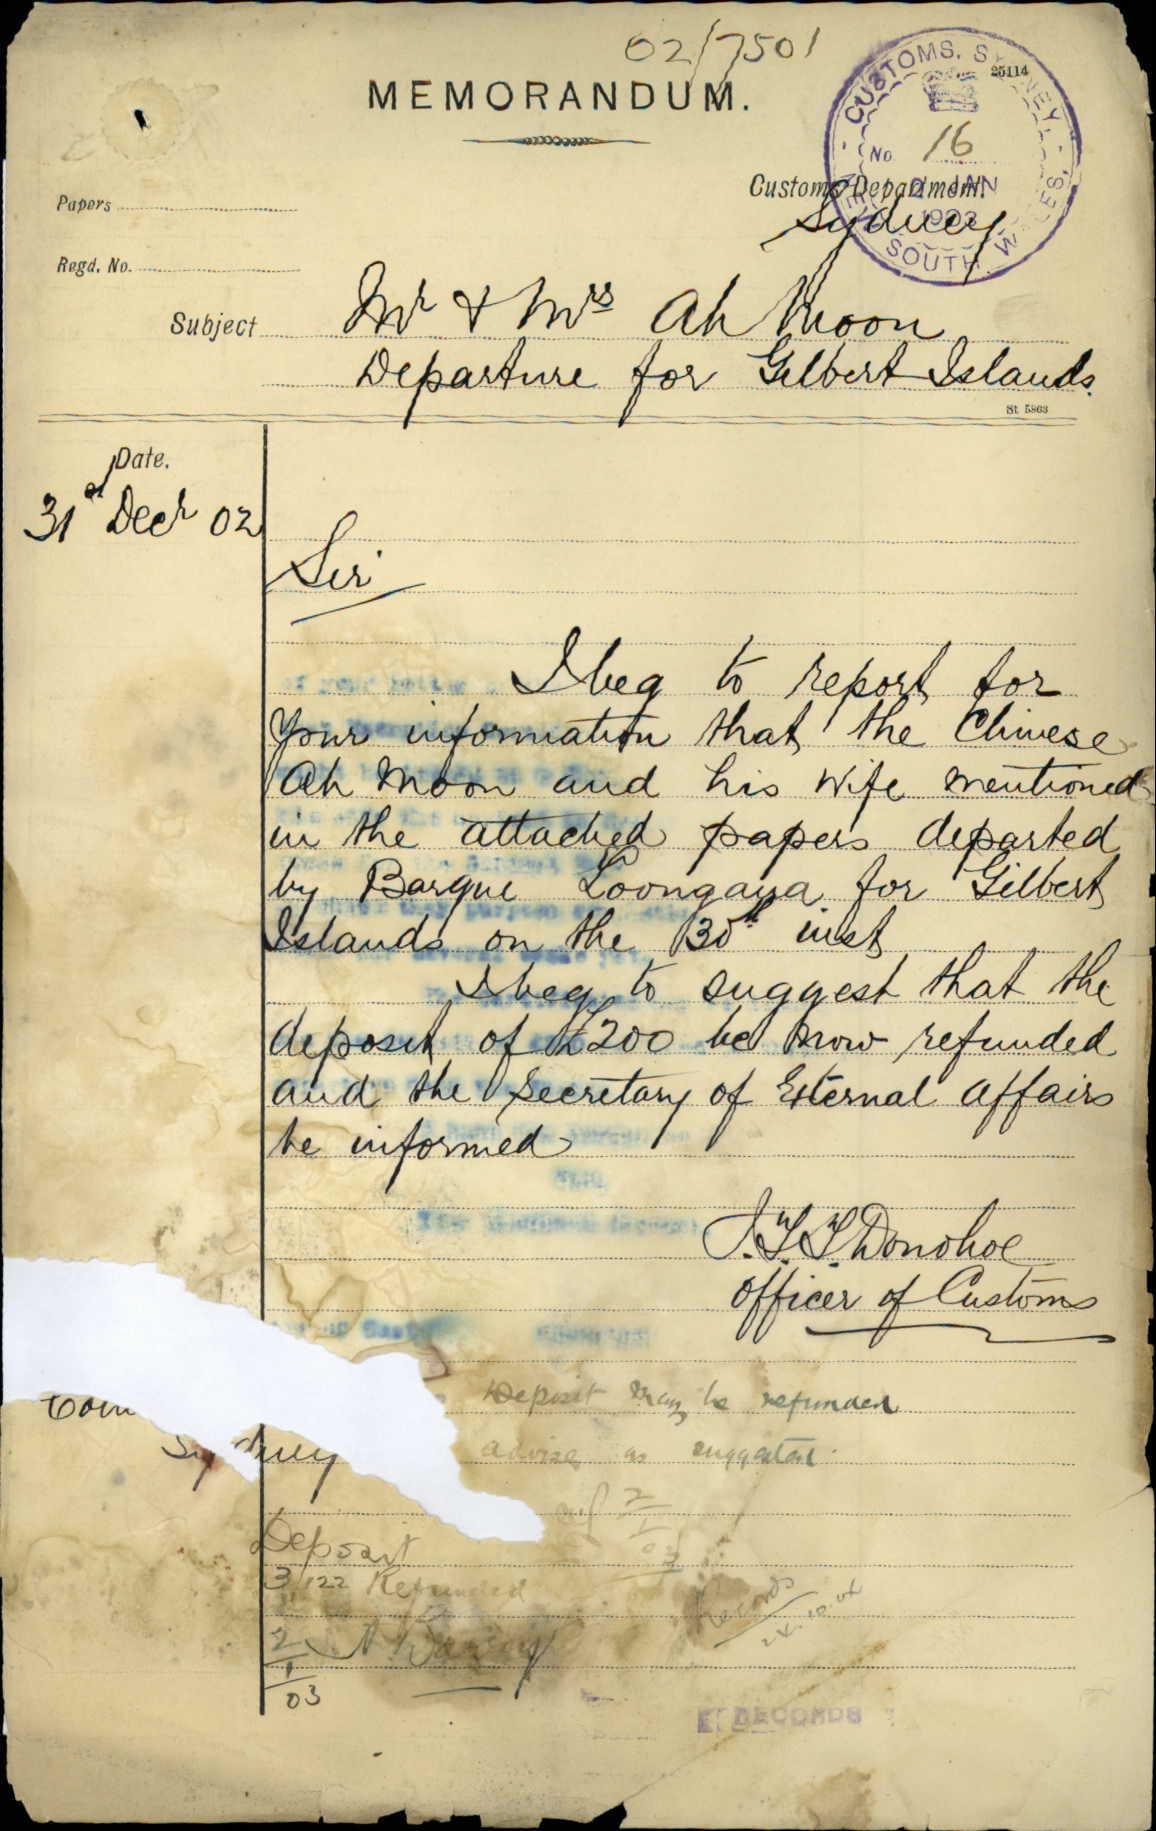 02/7501
MEMORANDUM.
CUSTOMS, SYDNEY,
25114
No. 16
Customs Department.
2 JAN
1903
NEW SOUTH WALES,
Sydney
Papers
Regd. No.
Subject Mr & Mrs Ah Moon
Departure for Gilbert Islands.
St 5863
Date.
31st Decr 02
Sir
I beg to report for
your information that the Chinese
Ah Moon and his wife mentioned
in the attached papers departed
by Barque Loongana for Gilbert
Islands on the 30th inst
I beg to suggest that the
deposit of £200 be now refunded
and the Secretary of External Affairs
be informed
J.T.T. Donohoe
Officer of Customs
Deposit may be refunded
advise as suggested.
Sydney
2
1
03
Deposit
3/122 Refunded
Records
24.10.04
2
1
03
RECORDS